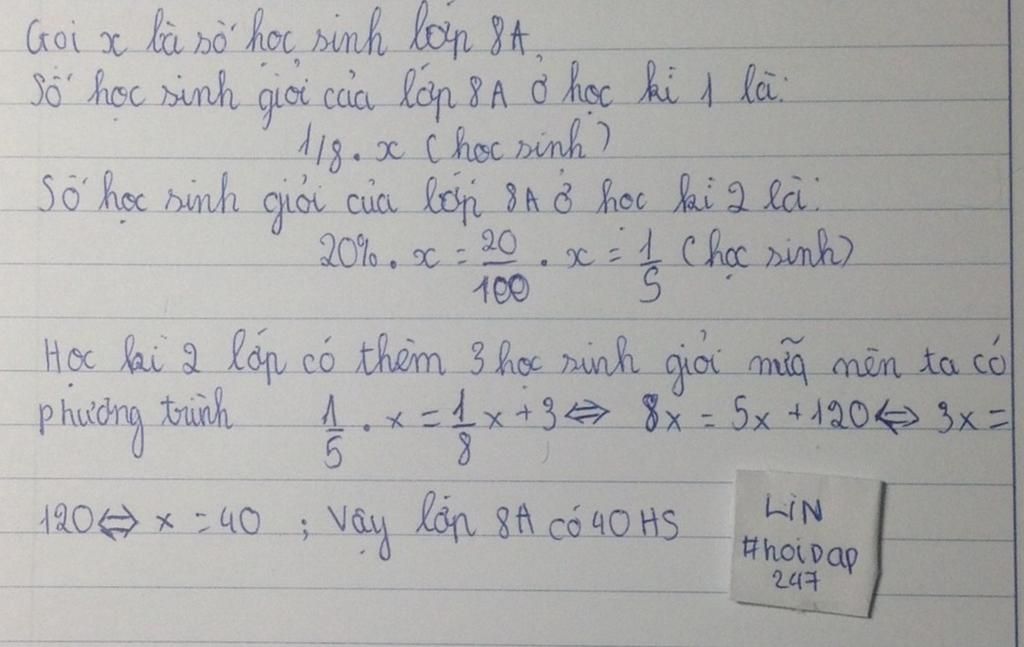 Gọi x là số học sinh lớp 8A.
Số học sinh giỏi của lớp 8A ở học kì 1 là:
1/8 . x (học sinh)
Số học sinh giỏi của lớp 8A ở học kì 2 là:
20% . x = 20/100 . x = 1/5 (học sinh)
Học kì 2 lớp có thêm 3 học sinh giỏi nữa nên ta có
phương trình 1/5 . x = 1/8 x + 3 ⇔ 8x = 5x + 120 ⇔ 3x =
120 ⇔ x = 40 ; Vậy lớp 8A có 40 HS
LiN
#hoiDap
247